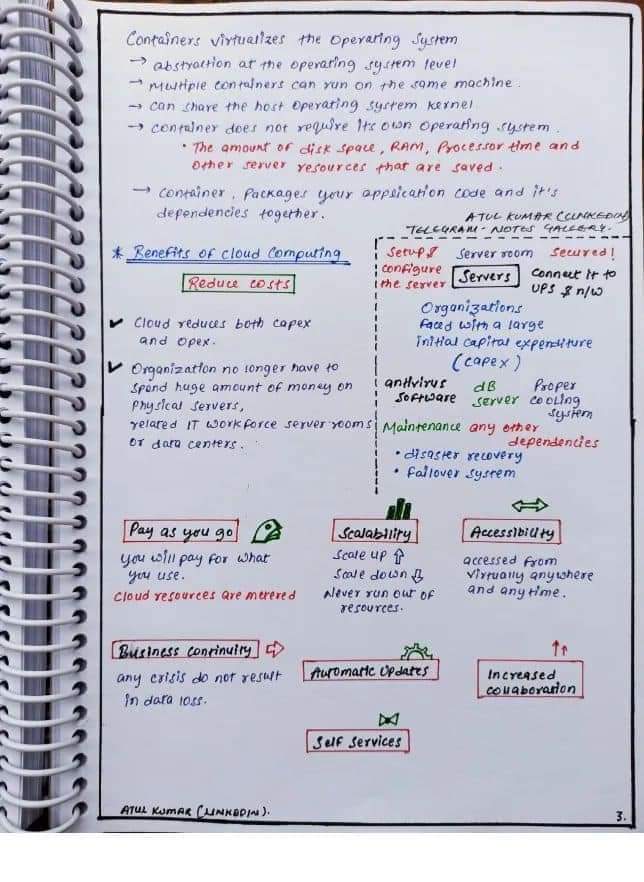 Containers virtualizes the Operating System
→ abstraction at the operating system level
→ Multiple containers can run on the same machine.
→ can share the host operating system kernel
→ container does not require its own operating system.
• The amount of disk space, RAM, Processor time and
other server resources that are saved.
→ Container, Packages your application code and it's
dependencies together.
ATUL KUMAR (LINKEDIN)
TELEGRAM - NOTES GALLERY.
* Benefits of Cloud Computing
Reduce costs
✔ Cloud reduces both capex
and opex.
✔ Organization no longer have to
spend huge amount of money on
Physical servers,
related IT workforce server rooms
or data centers.
Setup &
configure
the server
Server room
Servers
Secured!
Connect it to
UPS & n/w
Organizations
faced with a large
initial capital expenditure
(capex)
antivirus
software
dB
server
Proper
cooling
system
Maintenance
any other
dependencies
• disaster recovery
• failover system
Pay as you go
you will pay for what
you use.
Cloud resources are metered
Scalability
Scale up ⇧
Scale down ⇩
Never run out of
resources.
Accessibility
accessed from
virtually anywhere
and any time.
Business Continuity
any crisis do not result
in data loss.
Automatic Updates
Increased
collaboration
Self Services
ATUL KUMAR (LINKEDIN).
3.